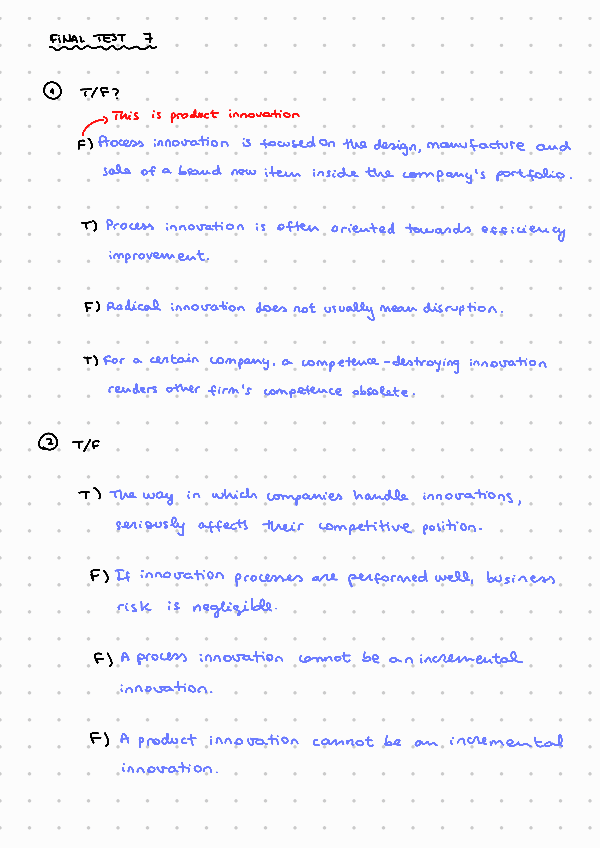 FINAL TEST 7
1 T/F?
This is product innovation
F) Process innovation is focused on the design, manufacture and
sale of a brand new item inside the company's portfolio.
T) Process innovation is often oriented towards efficiency
improvement.
F) Radical innovation does not usually mean disruption.
T) For a certain company, a competence-destroying innovation
renders other firm's competence obsolate.
2 T/F
T) The way in which companies handle innovations,
seriously affects their competitive position.
F) If innovation processes are performed well, business
risk is negligible.
F) A process innovation cannot be an incremental
innovation.
F) A product innovation cannot be an incremental
innovation.